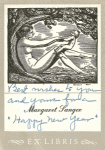 Best wishes to you
and yours for a
"Happy New Year"
Margaret Sanger
EX LIBRIS